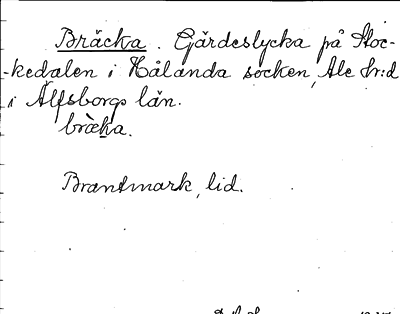 Bräcka. Gärdeslycka på Stoc-
-kedalen i Hålanda socken, Ale hr:d
i Älfsborgs län.
bräka.
Brantmark, lid.